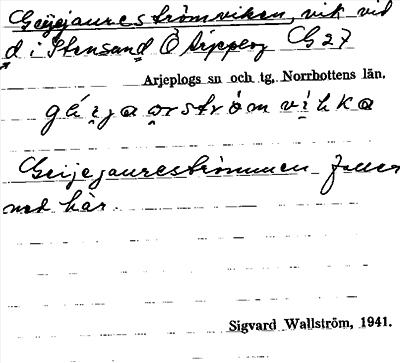 Geijejaureströmviken, vik vid
d i Stensund Ö Arjeplog G 27
Arjeplogs sn och tg. Norrbottens län.
Geijejaureströmmen faller
ned här.
Sigvard Wallström, 1941.